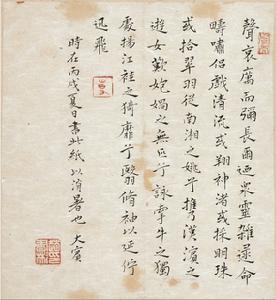 聲哀厲而彌長爾迺衆靈雜遝命
疇嘯侶戲清流或翔神渚或採明珠
或拾翠羽從南湘之兮攜漢濱之
遊女歎匏媧之無匹兮詠牽牛之獨
處揚江袿之猗靡兮翳脩袖以延佇
迅飛
時在丙戌夏日書此紙以消暑也 大賓